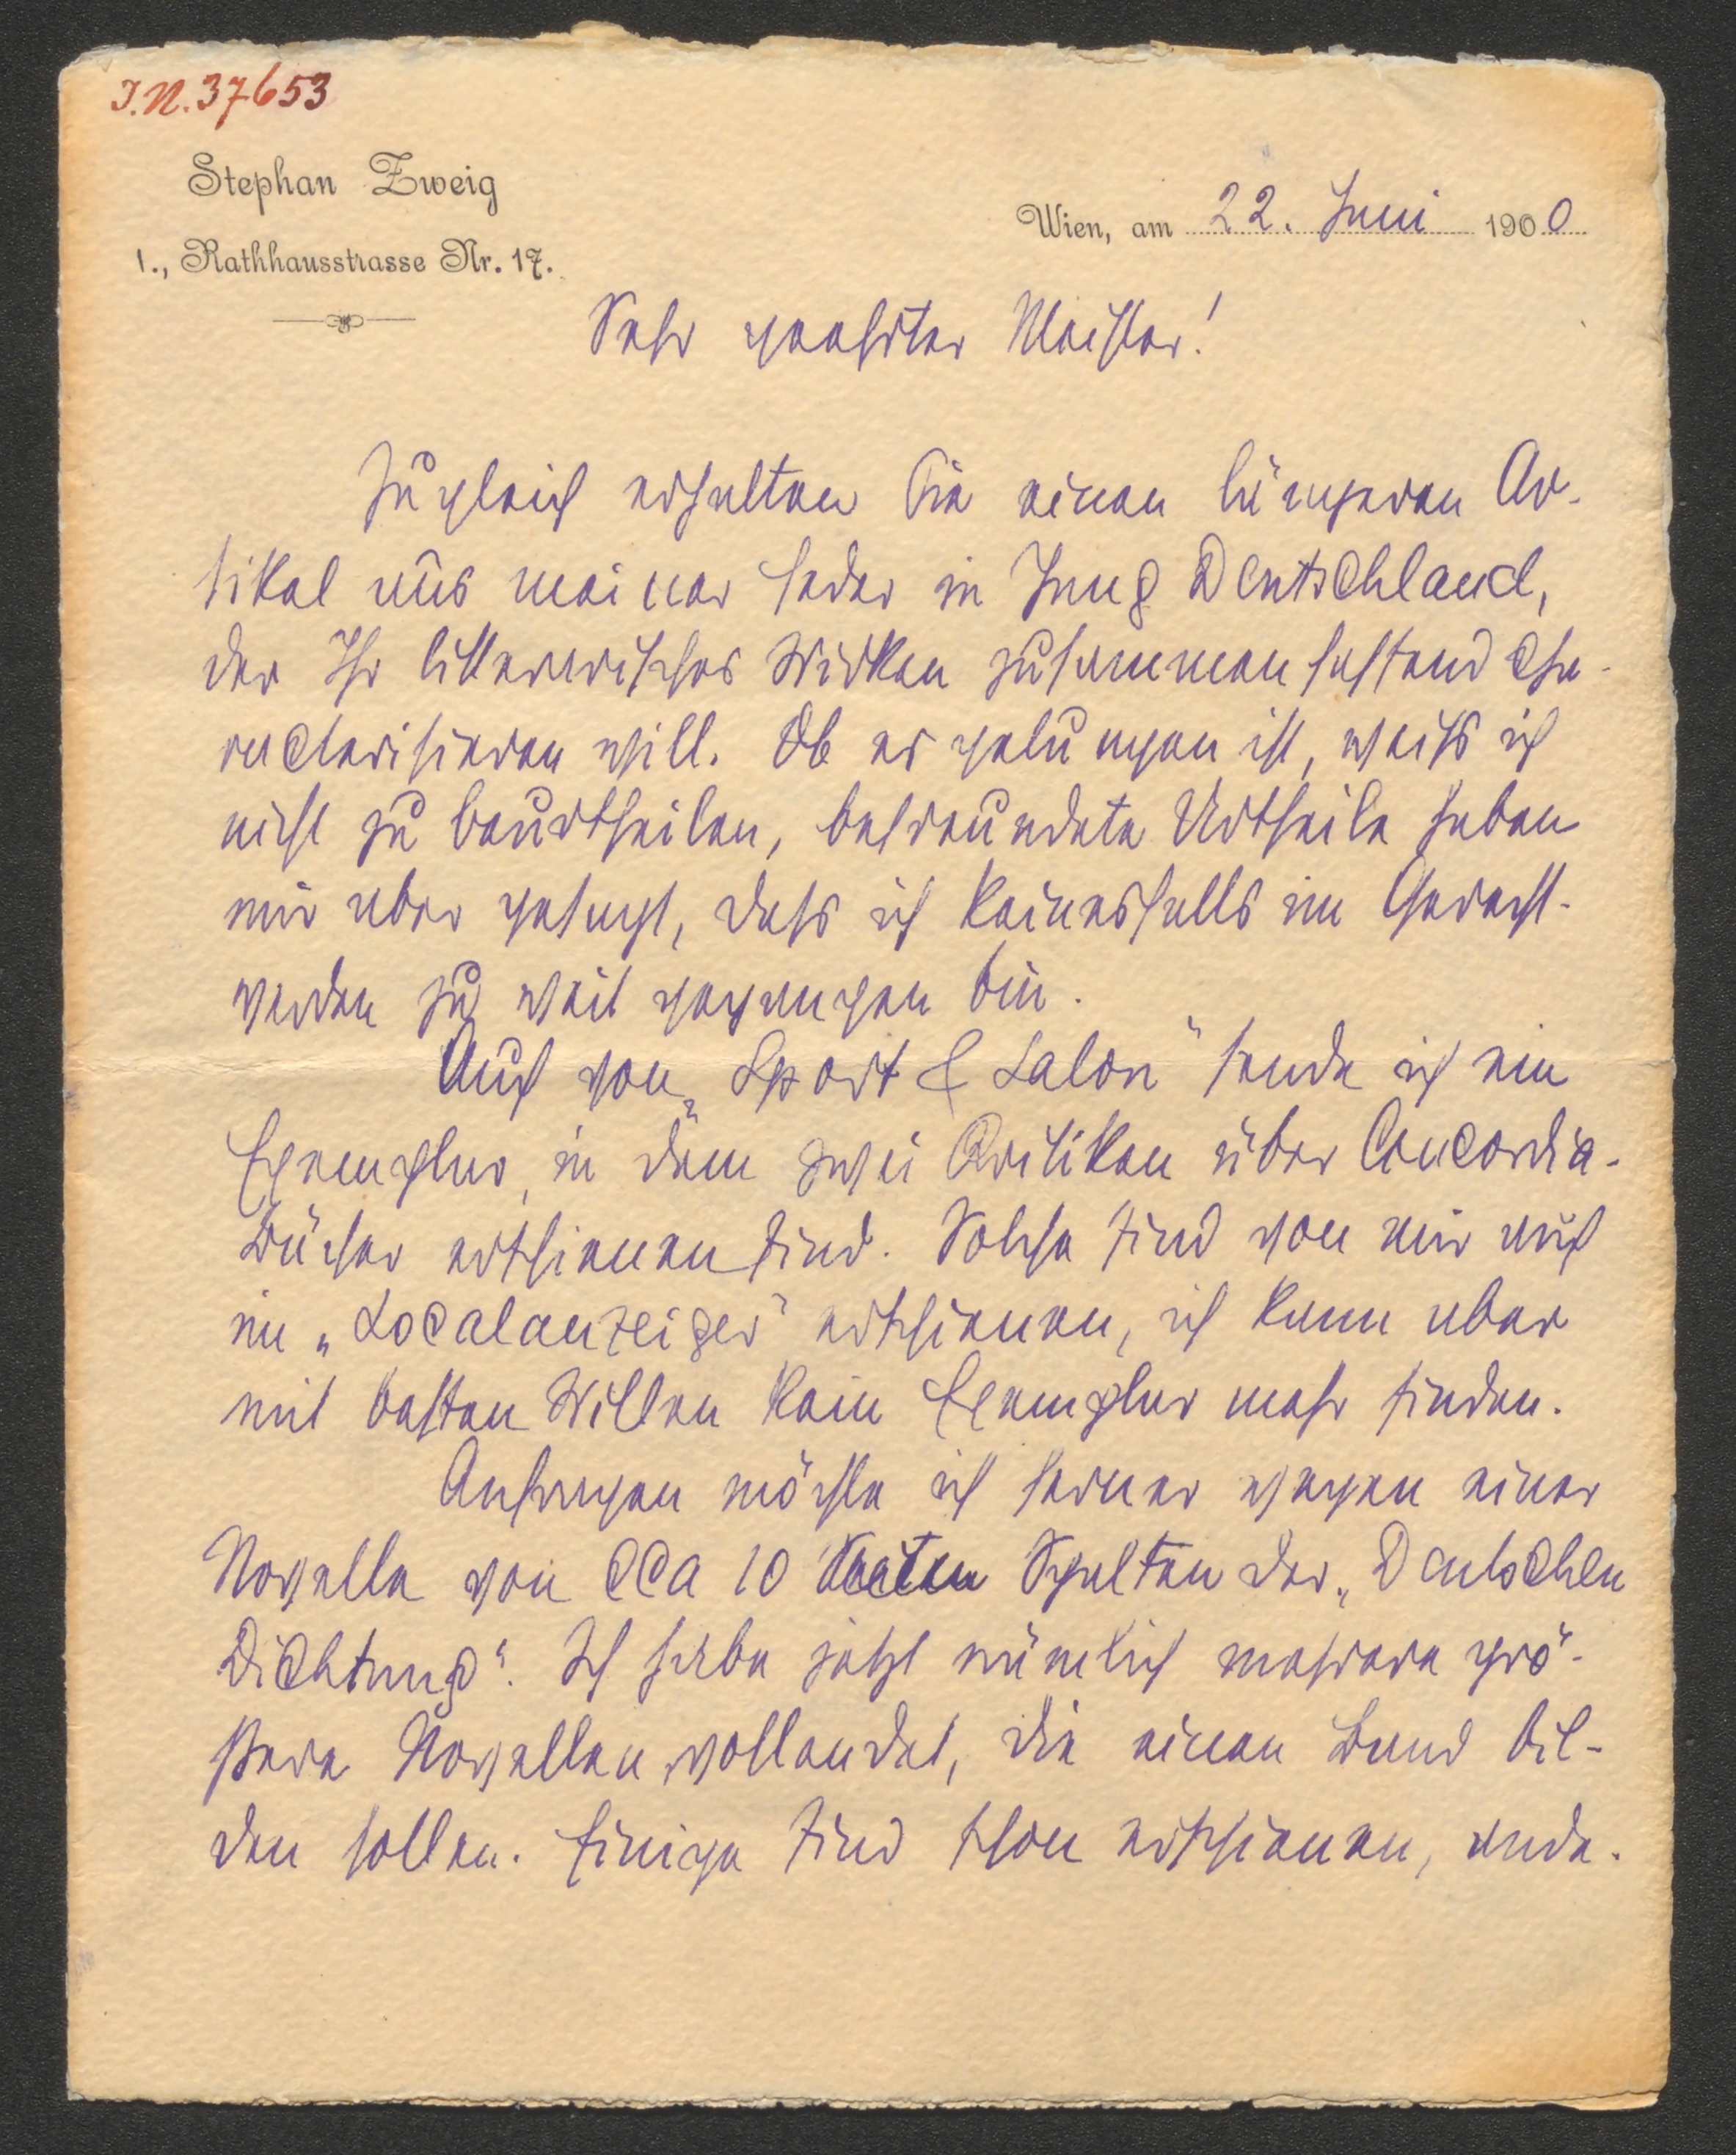 I.N. 37653
Stephan Zweig
I., Rathhausstrasse Nr. 17.
Wien, am 22. Juni 1900
Sehr geehrter Meister!
Zugleich erhalten Sie einen längeren Ar-
tikel aus meiner Feder in Jung Deutschland,
der Ihr litterarisches Wirken zusammenfassend cha-
racterisieren will. Ob es gelungen ist, weiß ich
nicht zu beurtheilen, befreundete Urtheile haben
mir aber gesagt, dass ich keinesfalls im Gerecht-
werden zu weit gegangen bin.
Auch von „Sport & Salon" sende ich ein
Exemplar, in dem zwei Critiken über Concordia-
bücher erschienen sind. Solche sind von mir auch
im „Localanzeiger" erschienen, ich kann aber
mit besten Willen kein Exemplar mehr finden.
Anfragen möchte ich ferner wegen einer
Novelle von cca 10 Seiten Spalten der „Deutschen
Dichtung". Ich habe jetzt nämlich mehrere grö-
ßere Novellen vollendet, die einen Band bil-
den sollen. Einige sind schon erschienen, ande-